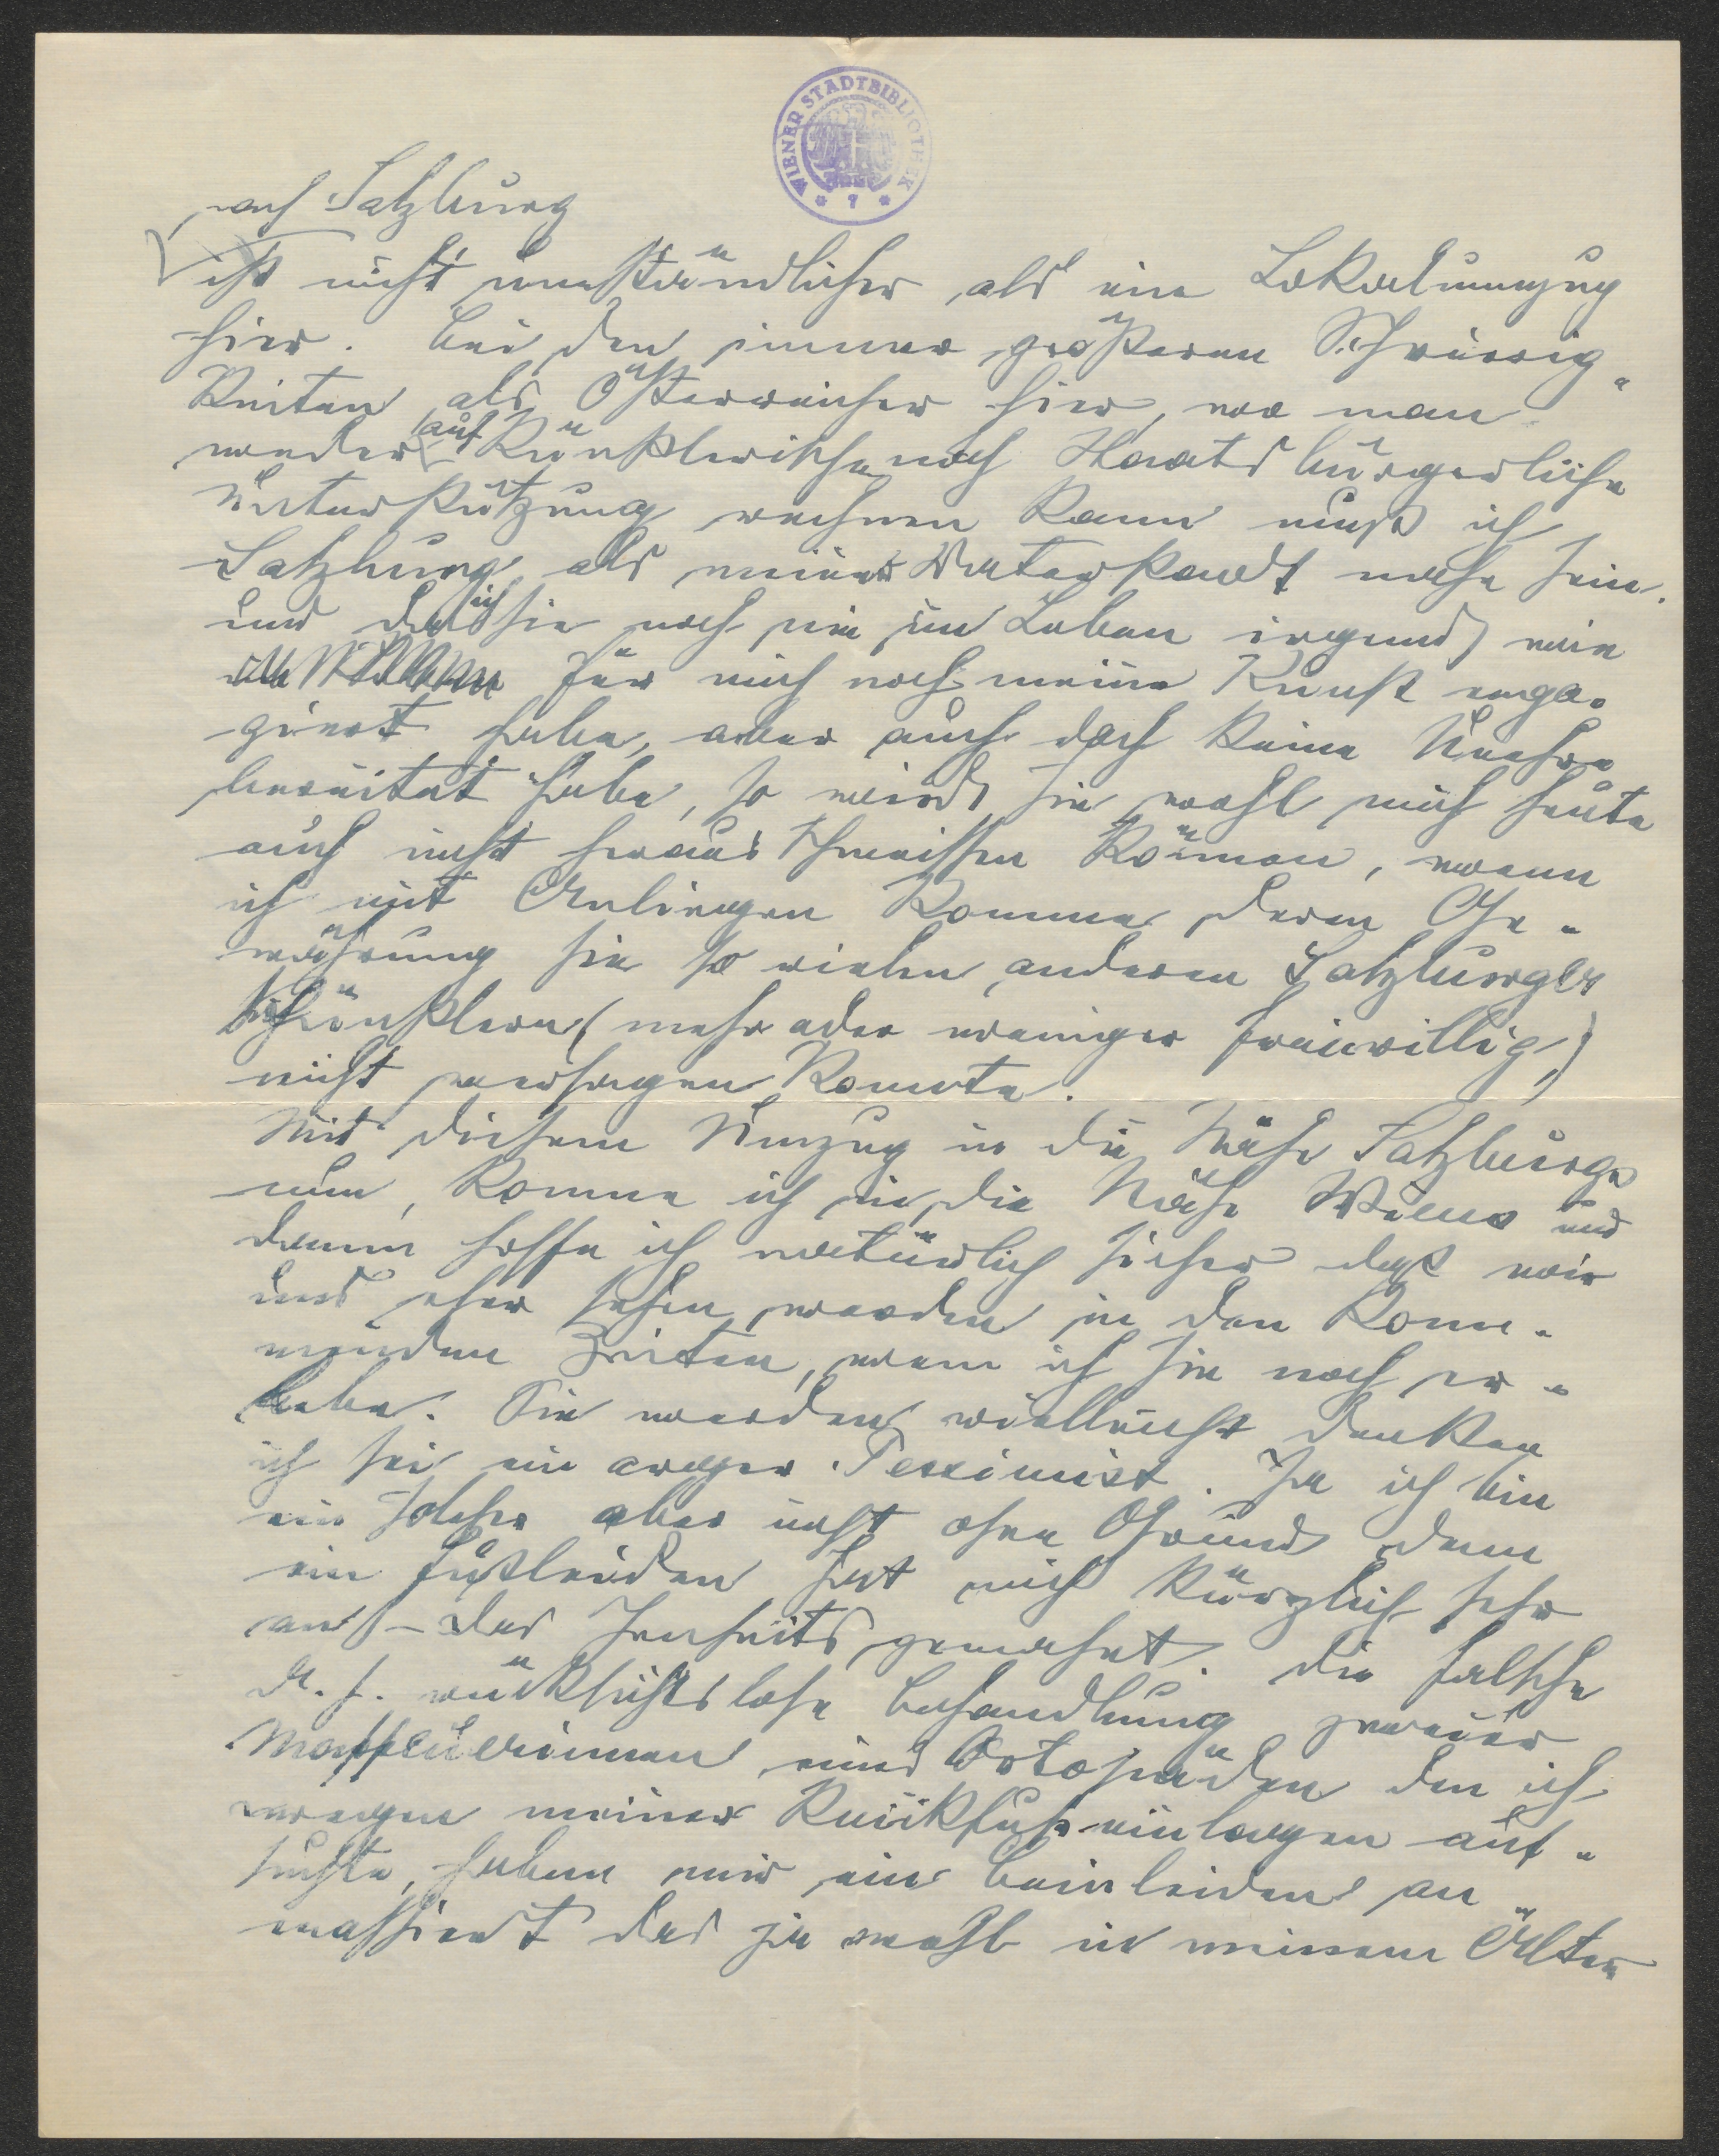 WIENER STADTBIBLIOTHEK
* 7 *
nach Salzburg
ist nicht umständlicher als ein Lokalumzug
hier. Bei den immer größeren Schwierig-
keiten als Österreicher hier, wo man
weder auf künstlerische noch staatsbürgerliche
Unterstützung rechnen kann muß ich
Salzburg als meiner Vaterstadt nahe sein.
und da ich sie noch nie im Leben irgend wie
für mich noch meine Kunst enga-
giert habe, aber auch doch keine Unehre
bereitet habe, so wird sie wohl mich heute
auch nicht herausschmeissen können, wenn
ich mit Anliegen komme deren Ge-
währung sie so vielen anderen Salzburger
Künstlern (mehr oder weniger freiwillig)
nicht versagen konnte.
Mit diesem Umzug in die Nähe Salzburgs
nun, komme ich in die Nähe Wiens und
dann hoffe ich natürlich sicher daß wir
uns eher sehen werden in den kom-
menden Zeiten, wenn ich sie noch er-
lebe. Sie werden vielleicht denken
ich sei ein arger Pessimist. Ja ich bin
ein solcher aber nicht ohne Grund denn
ein Fußleiden hat mich kürzlich sehr
ans – das Jenseits gemahnt. Die falsche
d. h. rücksichtslose Behandlung zweier
Masseuerinnen eines Ortopäden den ich
wegen meiner Knickfuß-einlagen auf-
suchte, haben mir ein Beinleiden an-
massiert das ja wohl in meinem Alter